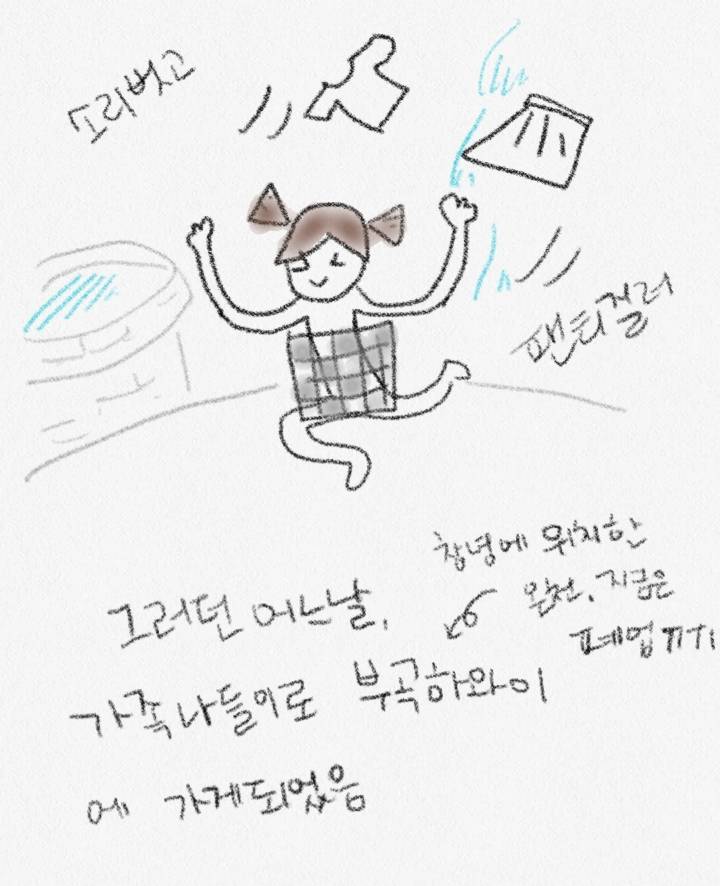 소리벗고
팬티질러
창녕에 위치한
온천. 지금은
폐업ㅠㅠ
그러던 어느날,
가족나들이로 부곡하와이
에 가게되었음